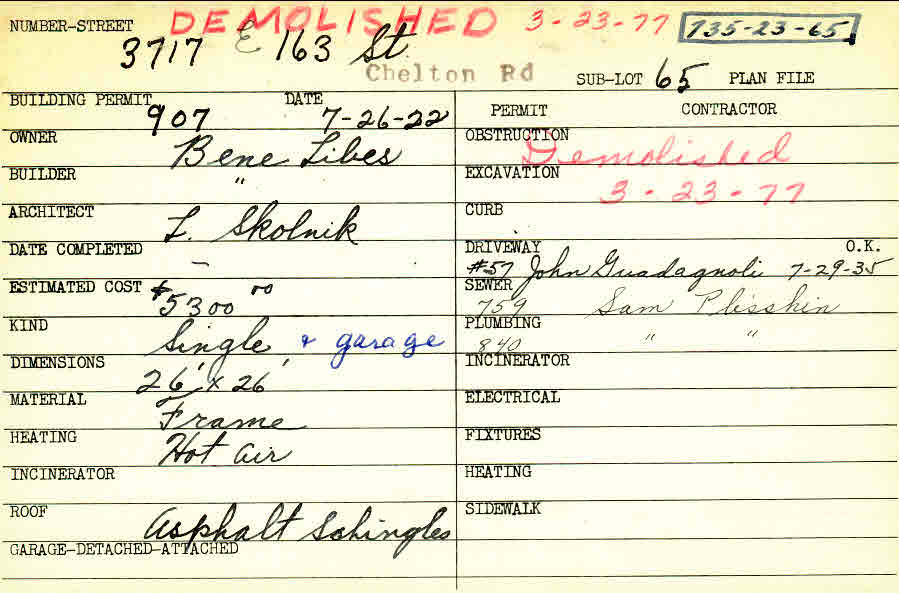 NUMBER-STREET DEMOLISHED 3-23-77 735-23-65
3717 E 163 St.
Chelton Rd SUB-LOT 65 PLAN FILE
BUILDING PERMIT 907 DATE 7-26-22
OWNER Bene Libes
BUILDER "
ARCHITECT L. Skolnik
DATE COMPLETED –
ESTIMATED COST $5300 00
KIND Single & garage
DIMENSIONS 26' x 26'
MATERIAL Frame
HEATING Hot air
INCINERATOR
ROOF Asphalt Schingles
GARAGE-DETACHED-ATTACHED
PERMIT CONTRACTOR
OBSTRUCTION Demolished
EXCAVATION 3-23-77
CURB
DRIVEWAY O.K.
#57 John Guadagnoli 7-29-35
SEWER 759 Sam Plisskin
PLUMBING 840 " "
INCINERATOR
ELECTRICAL
FIXTURES
HEATING
SIDEWALK